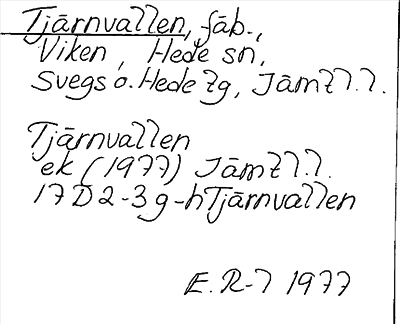 Tjärnvallen, fäb.,
Viken, Hede sn,
Svegs o. Hede tg, Jämtl.l.
Tjärnvallen
ek (1977) Jämtl.l.
17D2-3g-h Tjärnvallen
E. R-l 1977